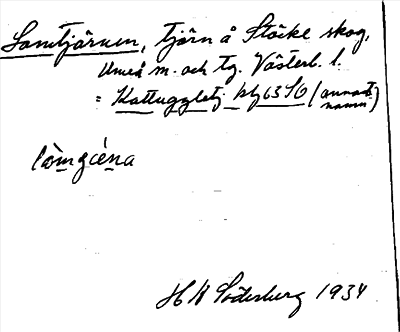 Lomtjärnen, tjärn å Stöcke skog,
Umeå m. och tg. Västerb. l.
= Kattuggletj (annat namn)
lòmgi̯èna
H N Söderberg 1934